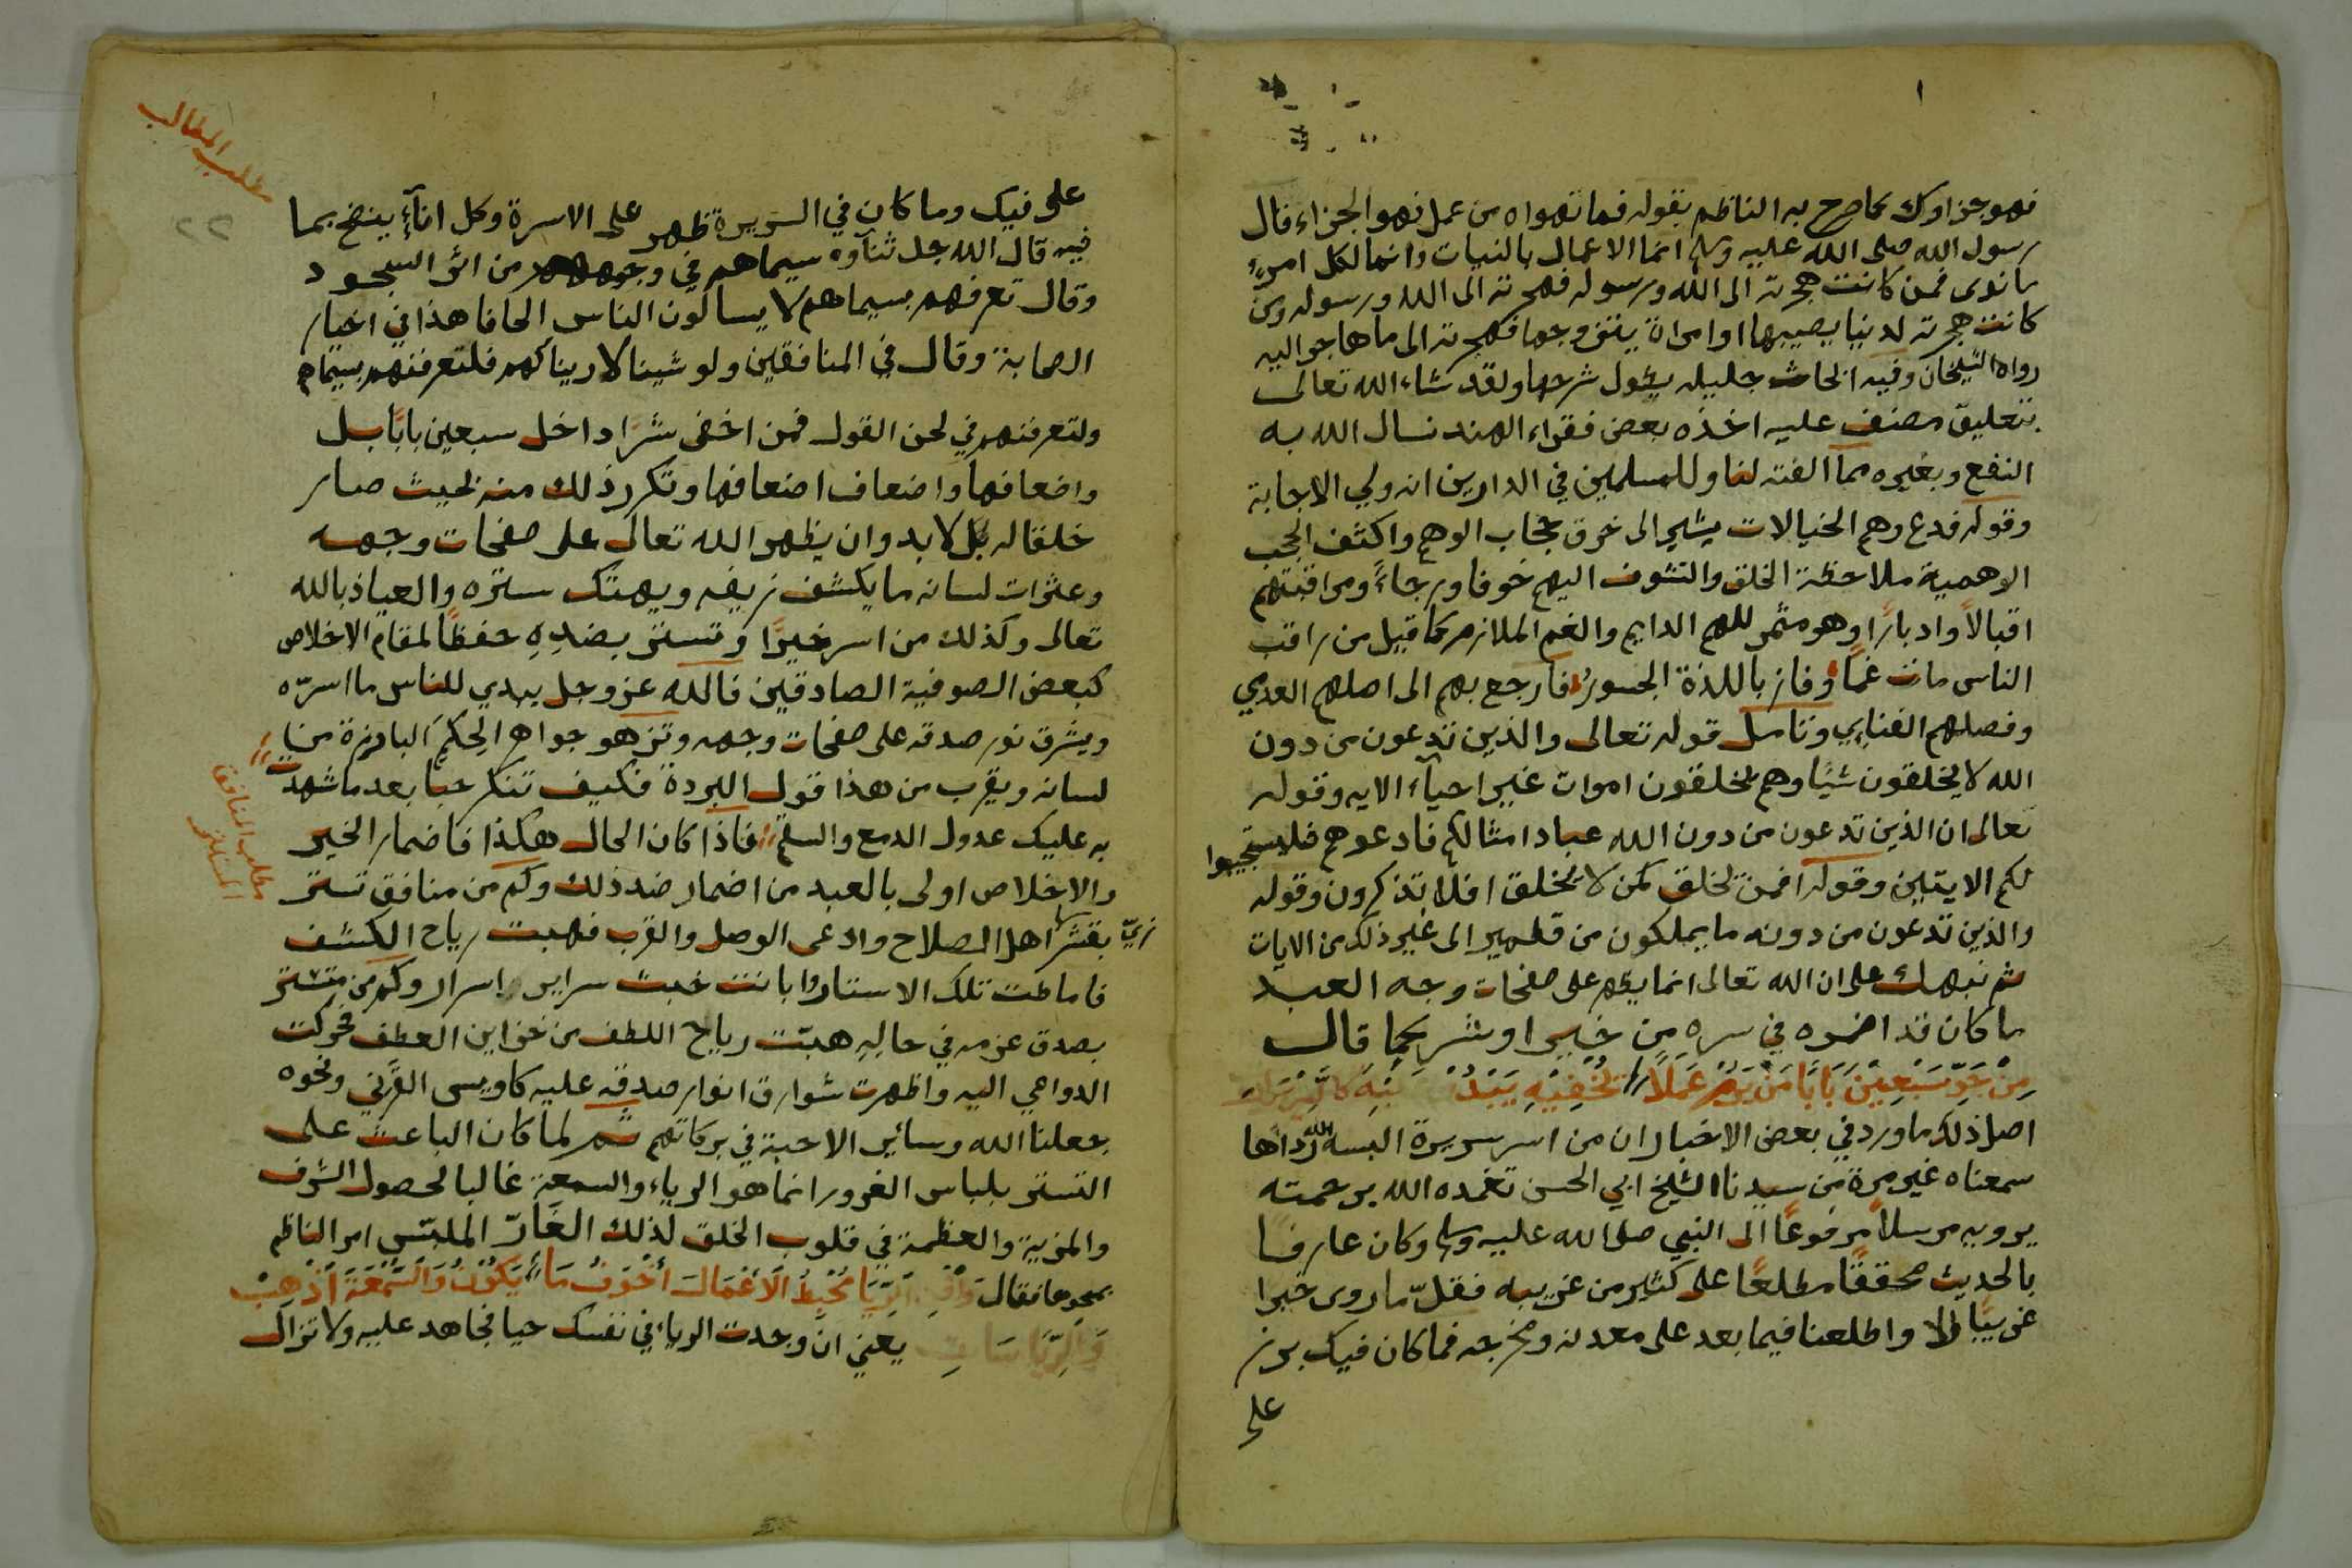 فهو جزاوك كما صرح به الناظم بقوله فما تهواه من عمل فهو الجزاء قال
رسول الله صلى الله عليه وسلم انما الاعمال بالنيات وانما لكل امرئ
ما نوى فمن كانت هجرته الى الله ورسوله فهجرته الى الله ورسوله ومن
كانت هجرته لدنيا يصيبها او امراة يتزوجها فهجرته الى ما هاجر اليه
رواه الشيخان وفيه ابحاث جليله يطول شرحها ولقد شاء الله تعالى
بتعليق مصنف عليه اخذه بعض فقراء الهند نسال الله به
النفع وبغيره مما الفته لنا وللمسلمين في الدارين انه ولي الاجابة
وقوله فدع وهم الخيالات يشير الى خرق حجاب الوهم واكثف الحجب
الوهمية ملاحظة الخلق والتشوف اليهم خوفا ورجاءً ومراقبتهم
اقبالاً وادبارًا وهو مثمر للهم الدايم والغم الملازم كما قيل من راقب
الناس مات غمًا وفاز باللذة الجسور فارجع بهم الى اصلهم العدمي
وفصلهم الفنائي وتامل قوله تعالى والذين تدعون من دون
الله لا يخلقون شيًا وهم يخلقون اموات غير احياء الايه وقوله
تعالى ان الذين تدعون من دون الله عباد امثالكم فادعوهم فليستجيبوا
لكم الايتين وقوله افمن يخلق كمن لا يخلق افلا تذكرون وقوله
والذين تدعون من دونه ما يملكون من قطمير الى غير ذلك من الايات
ثم نبهك على ان الله تعالى انما يظهر على صفحات وجه العبد
ما كان قد اضمره في سره من خير او شر كما قال
مِنْ جَوِّ سَبْعِيْنَ بَابًا مَنْ يَرُمْ عَمَلاً يُخْفِيْهِ يَبْدُ
اصل ذلك ما ورد في بعض الاخبار ان من اسر سريرة البسه الله رداها
سمعناه غير مرة من سيدنا الشيخ ابي الحسن تغمده الله برحمته
يرويه مرسلاً مرفوعًا الى النبي صلى الله عليه وسلم وكان عارفا
بالحديث محققًا مطلعًا على كثير من غريبه فقلّ ما روى خبرا
غريبًا الا واطلعنا فيما بعد على معدنه ومخرجه فما كان فيك برز
على
مطلب المطالب
٢٢
على فيك وما كان في السريرة ظهر على الاسرة وكل اناءٍ ينضح بما
فيه قال الله جل ثناوه سيماهم في وجوههم من اثر السجود
وقال تعرفهم بسيماهم لا يسالون الناس الحافا هذا في اخيار
الصحابة وقال في المنافقين ولو شينا لاريناكهم فلتعرفنهم بسيماهم
ولتعرفنهم في لحن القول فمن اخفى شرًا داخل سبعين بابًا بل
واضعافها واضعاف اضعافها وتكرر ذلك منه بحيث صار
خلقا له بل لا بد وان يظهر الله تعالى على صفحات وجهه
وعثرات لسانه ما يكشف زيفه ويهتك ستره والعياذ بالله
تعالى وكذلك من اسر خيرًا وتستر بضدهِ حفظًا لمقام الاخلاص
كبعض الصوفية الصادقين فالله عز وجل يبدي للناس ما اسرّه
ويشرق نور صدقه على صفحات وجهه وتزهو جواهر الحِكَمِ البارزة من
لسانه ويقرب من هذا قول البردة فكيف تنكر حبًا بعد ما شهدت
به عليك عدول الدمع والسقم فاذا كان الحال هكذا فاضمار الخير
مطلب المنافق المتستر
والاخلاص اولى بالعبد من اضمار ضد ذلك وكم من منافق تستر
بقشر زيّ اهل الصلاح وادعى الوصل والقرب فهبت رياح الكشف
فاماطت تلك الاستار وابانت خبث سراير اسرار وكم من متستر
بصدق عزمه في حالهِ هبّت رياح اللطف من خزاين العطف فحركت
الدواعي اليه واظهرت شوارق انوار صدقه عليه كاويس القَرَني ونحوه
جعلنا الله وساير الاحبة في بركاتهم ثم لما كان الباعث على
التستر بلباس الغرور انما هو الرياء والسمعة غالبا لحصول الشرف
والمزية والعظمة في قلوب الخلق لذلك الغَارّ الملبّس امر الناظم
بمحوها فقال يُحْبِطُ الاَعْمَالَ اَخْوَفُ مَا يَكُوْنُ وَالسُّمْعَةَ اَذْهِبْ
وَالرِّيَاسَاتِ يعني ان وجدت الرياء في نفسك حيا فجاهد عليه ولا تزال